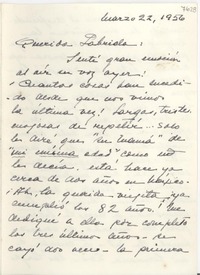 marzo 22, 1956
Querida Gabriela:
Sentí gran emoción
al oir su voz ayer!
¡Cuantas cosas han sucedi-
do desde que nos vimos
la última vez! Largas, tristes
mejores de repetir... solo
le dire que "la mamá" de
"mi misma edad" como ud
les decía, está hace ya
cerca de dos años en
¡Ah, la querida viejita ya
cumplió los 82 años! Me
dediqué a ella por completo
los tres últimos años - se
cayó dos veces - la primera